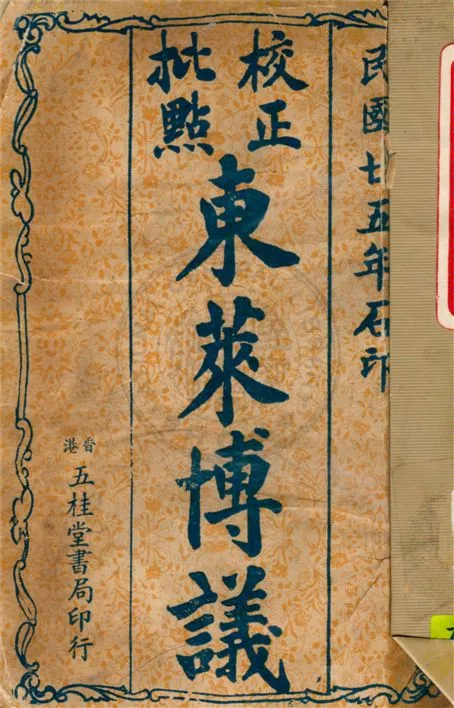 民國廿五年石印
校正
批點
東萊博議
香港
五桂堂書局印行